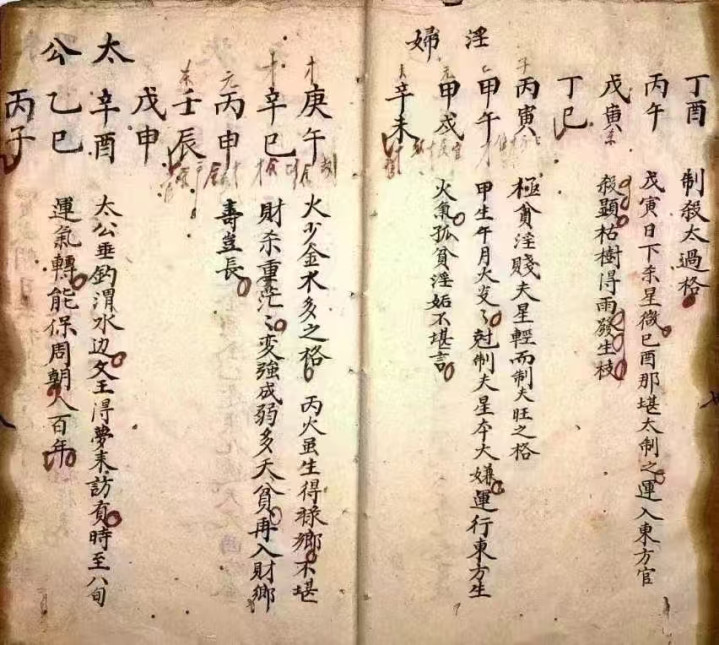 丁酉 制殺太過格
丙午 戊寅日下杀星微己酉那堪太制之運入東方官
戊寅 殺顯枯樹得雨發生枝
丁巳
淫婦
丙寅 極貧淫賤夫星輕而制夫旺之格
甲午 甲生午月火炎々尅制夫星本大嫌運行東方生
甲戌 火氣孤貧淫妬不堪言
辛未
庚午 火少金水多之格 丙火虽生得禄鄉不堪
辛巳 財杀重茫々変強成弱多夭貧再入財鄉
丙申 壽豈長
壬辰
太公
戊申
辛酉 太公垂釣渭水边文王得夢来訪賢時至八旬
乙巳 運氣轉能保周朝八百年
丙子